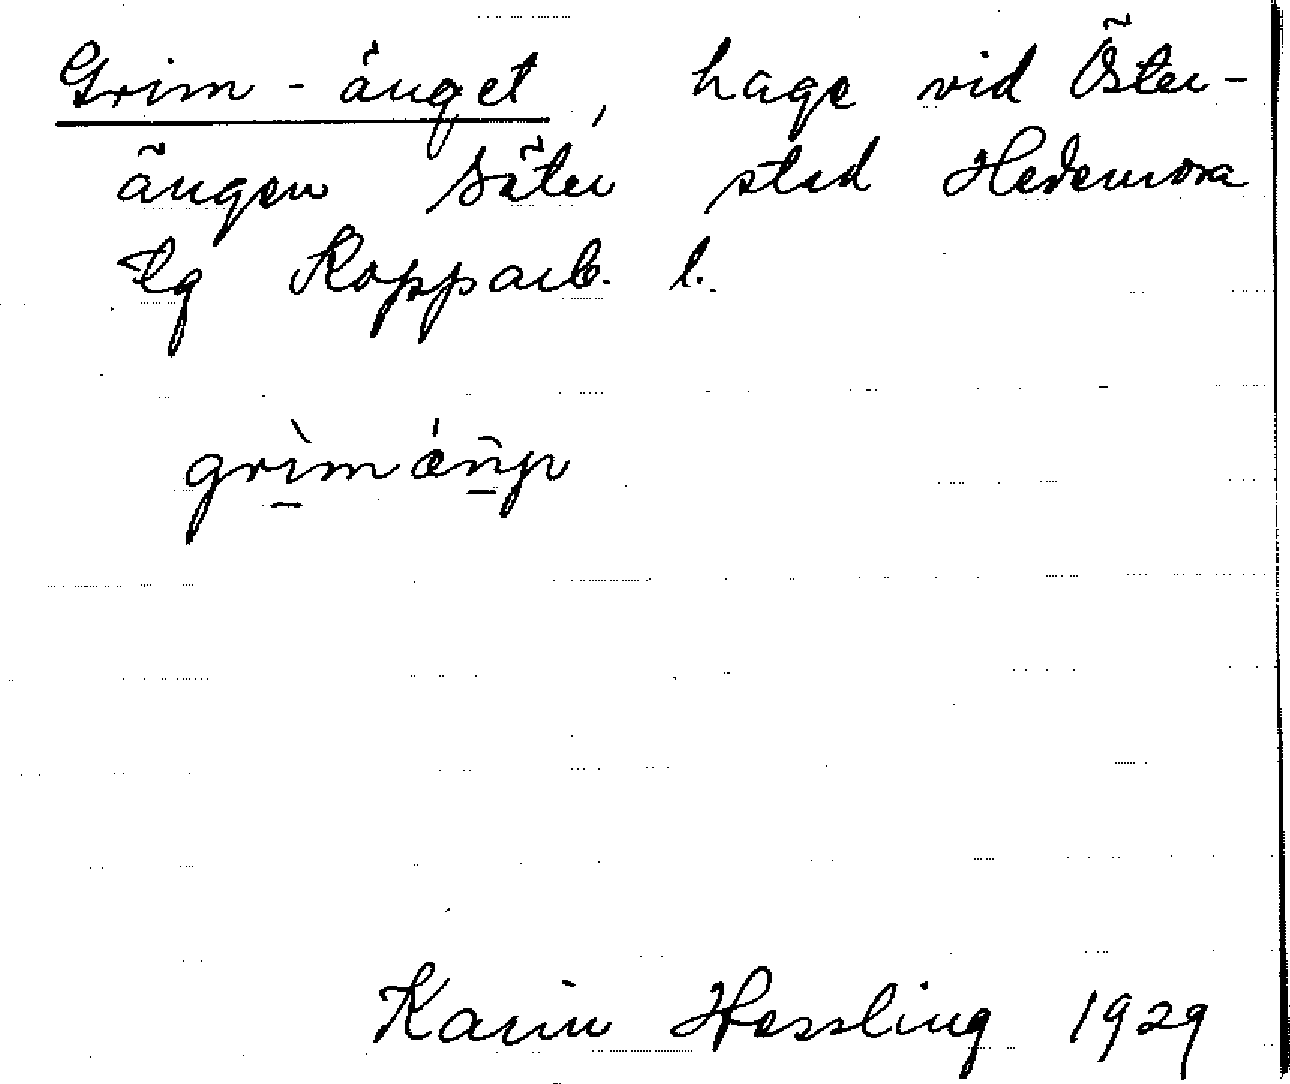 Grim-änget, hage vid Öster-
ängen Säter stad Hedemora
tg Kopparb. l.
Karin Hessling 1929